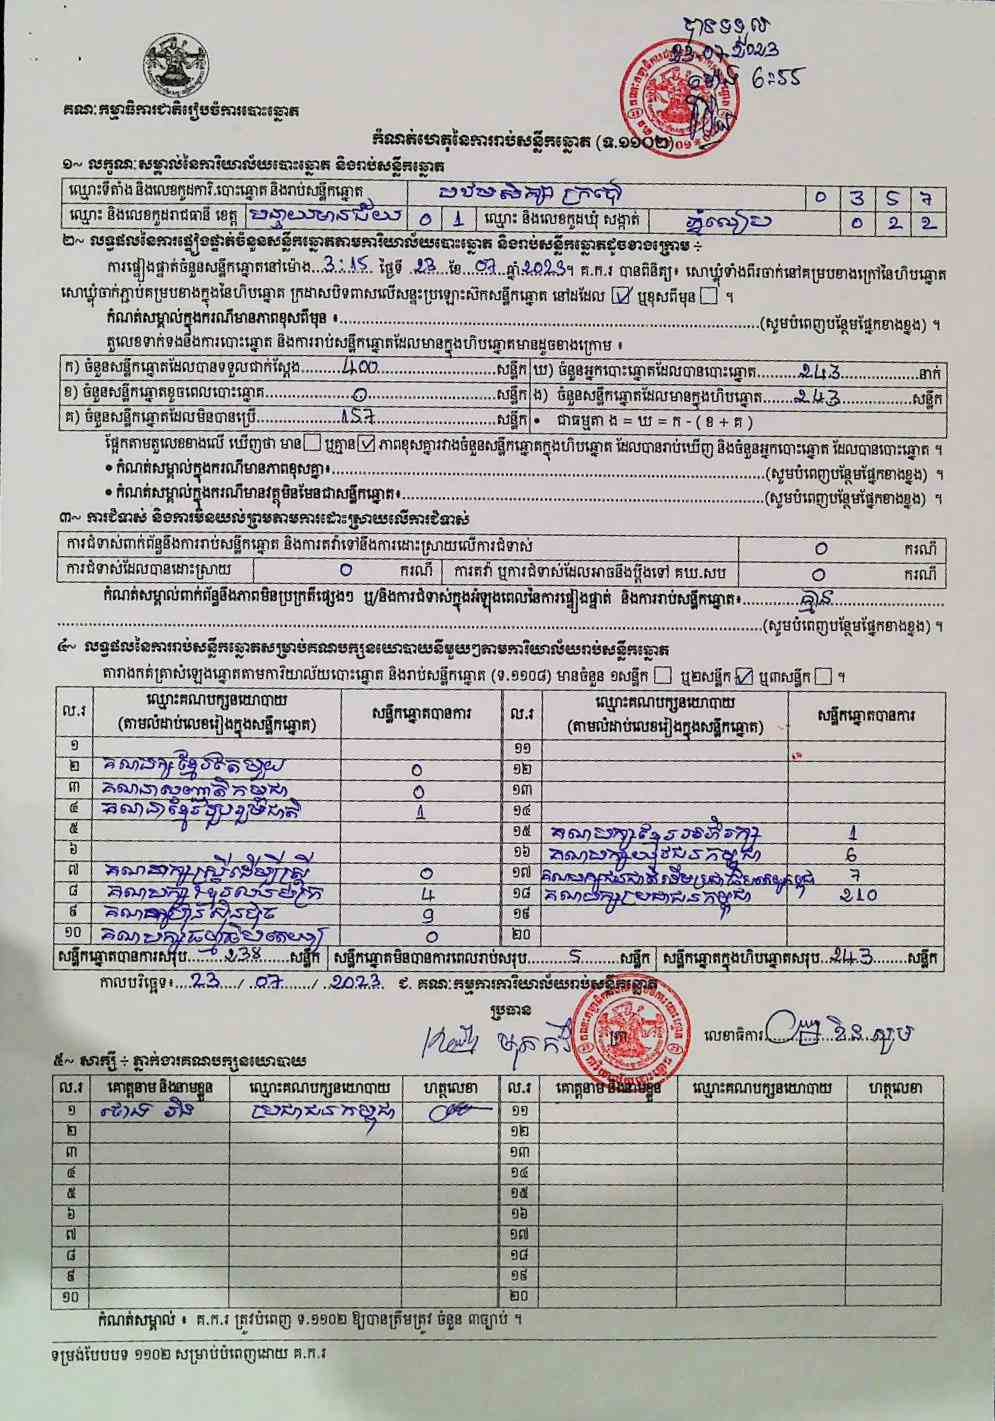 បានទទួល
23.07.2023
ម៉ោង 6:55
គណៈកម្មាធិការជាតិរៀបចំការបោះឆ្នោត
កំណត់ហេតុនៃការរាប់សន្លឹកឆ្នោត (ទ.១១០២)
១~ លក្ខណៈសម្គាល់នៃការិយាល័យបោះឆ្នោត និងរាប់សន្លឹកឆ្នោត
ឈ្មោះទីតាំង និងលេខកូដការិ.បោះឆ្នោត និងរាប់សន្លឹកឆ្នោត បឋមសិក្សា ក្រប៉ៅ 0 3 5 7
ឈ្មោះ និងលេខកូដរាជធានី ខេត្ត បន្ទាយមានជ័យ 0 1 ឈ្មោះ និងលេខកូដឃុំ សង្កាត់ ភ្នំលៀប 0 2 2
២~ លទ្ធផលនៃការផ្ទៀងផ្ទាត់ចំនួនសន្លឹកឆ្នោតតាមការិយាល័យបោះឆ្នោត និងរាប់សន្លឹកឆ្នោតដូចខាងក្រោម ÷
ការផ្ទៀងផ្ទាត់ចំនួនសន្លឹកឆ្នោតនៅម៉ោង...3:15 ថ្ងៃទី 23 ខែ...07 ឆ្នាំ 2023។ គ.ក.រ បានពិនិត្យ៖ សោឃ្លុំទាំងពីរចាក់នៅគម្របខាងក្រៅនៃហិបឆ្នោត
សោឃ្លុំចាក់ភ្ជាប់គម្របខាងក្នុងនៃហិបឆ្នោត ក្រដាសបិទពាសលើសន្ទះប្រឡោះស៊កសន្លឹកឆ្នោត នៅដដែល ☑ ឬខុសពីមុន ☐ ។
កំណត់សម្គាល់ក្នុងករណីមានភាពខុសពីមុន ៖..........(សូមបំពេញបន្ថែមផ្នែកខាងខ្នង) ។
តួលេខទាក់ទងនឹងការបោះឆ្នោត និងការរាប់សន្លឹកឆ្នោតដែលមានក្នុងហិបឆ្នោតមានដូចខាងក្រោម ៖
ក) ចំនួនសន្លឹកឆ្នោតដែលបានទទួលជាក់ស្តែង..........400..........សន្លឹក ឃ) ចំនួនអ្នកបោះឆ្នោតដែលបានបោះឆ្នោត..........243..........នាក់
ខ) ចំនួនសន្លឹកឆ្នោតខូចពេលបោះឆ្នោត..........0..........សន្លឹក ង) ចំនួនសន្លឹកឆ្នោតដែលមានក្នុងហិបឆ្នោត..........243..........សន្លឹក
គ) ចំនួនសន្លឹកឆ្នោតដែលមិនបានប្រើ..........157..........សន្លឹក • ជាធម្មតា ង = ឃ = ក - ( ខ + គ )
ផ្អែកតាមតួលេខខាងលើ ឃើញថា មាន ☐ ឬគ្មាន ☑ ភាពខុសគ្នារវាងចំនួនសន្លឹកឆ្នោតក្នុងហិបឆ្នោត ដែលបានរាប់ឃើញ និងចំនួនអ្នកបោះឆ្នោត ដែលបានបោះឆ្នោត ។
• កំណត់សម្គាល់ក្នុងករណីមានភាពខុសគ្នា៖..........(សូមបំពេញបន្ថែមផ្នែកខាងខ្នង) ។
• កំណត់សម្គាល់ក្នុងករណីមានវត្ថុមិនមែនជាសន្លឹកឆ្នោត៖..........(សូមបំពេញបន្ថែមផ្នែកខាងខ្នង) ។
៣~ ការជំទាស់ និងការមិនយល់ព្រមតាមការដោះស្រាយលើការជំទាស់
ការជំទាស់ពាក់ព័ន្ធនឹងការរាប់សន្លឹកឆ្នោត និងការតវ៉ាទៅនឹងការដោះស្រាយលើការជំទាស់ 0 ករណី
ការជំទាស់ដែលបានដោះស្រាយ 0 ករណី ការតវ៉ា ឬការជំទាស់ដែលអាចនឹងប្តឹងទៅ គឃ.សប 0 ករណី
កំណត់សម្គាល់ពាក់ព័ន្ធនឹងភាពមិនប្រក្រតីផ្សេងៗ ឬ/និងការជំទាស់ក្នុងអំឡុងពេលនៃការផ្ទៀងផ្ទាត់ និងការរាប់សន្លឹកឆ្នោត៖..........គ្មាន
..........(សូមបំពេញបន្ថែមផ្នែកខាងខ្នង) ។
៤~ លទ្ធផលនៃការរាប់សន្លឹកឆ្នោតសម្រាប់គណបក្សនយោបាយនីមួយៗតាមការិយាល័យរាប់សន្លឹកឆ្នោត
តារាងកត់ត្រាសំឡេងឆ្នោតតាមការិយាល័យបោះឆ្នោត និងរាប់សន្លឹកឆ្នោត (ទ.១១០៨) មានចំនួន ១សន្លឹក ☐ ឬ២សន្លឹក ☑ ឬ៣សន្លឹក ☐ ។
ល.រ ឈ្មោះគណបក្សនយោបាយ (តាមលំដាប់លេខរៀងក្នុងសន្លឹកឆ្នោត) សន្លឹកឆ្នោតបានការ ល.រ ឈ្មោះគណបក្សនយោបាយ (តាមលំដាប់លេខរៀងក្នុងសន្លឹកឆ្នោត) សន្លឹកឆ្នោតបានការ
១ ១១
២ គណបក្សខ្មែរតែមួយ 0 ១២
៣ 0 ១៣
៤ គណបក្សខ្មែររួបរួមជាតិ 1 ១៤
៥ ១៥ គណបក្សខ្មែរអភិរក្ស 1
៦ ១៦ គណបក្សយុវជនកម្ពុជា 6
៧ គណបក្សស្ត្រីដើម្បីស្ត្រី 0 ១៧ 7
៨ 4 ១៨ គណបក្សប្រជាជនកម្ពុជា 210
៩ គណបក្សហ៊្វុនស៊ិនប៉ិច 9 ១៩
១០ គណបក្សធម្មាធិបតេយ្យ 0 ២០
សន្លឹកឆ្នោតបានការសរុប..........238..........សន្លឹក សន្លឹកឆ្នោតមិនបានការពេលរាប់សរុប..........5..........សន្លឹក សន្លឹកឆ្នោតក្នុងហិបឆ្នោតសរុប..243..........សន្លឹក
កាលបរិច្ឆេទ៖....23..../..07..../..2023. ជ. គណៈកម្មការការិយាល័យរាប់សន្លឹកឆ្នោត
ប្រធាន
ត្រា
លេខាធិការ
៥~ សាក្សី ÷ ភ្នាក់ងារគណបក្សនយោបាយ
ល.រ គោត្តនាម និងនាមខ្លួន ឈ្មោះគណបក្សនយោបាយ ហត្ថលេខា ល.រ គោត្តនាម និងនាមខ្លួន ឈ្មោះគណបក្សនយោបាយ ហត្ថលេខា
១ ប្រជាជនកម្ពុជា ១១
២ ១២
៣ ១៣
៤ ១៤
៥ ១៥
៦ ១៦
៧ ១៧
៨ ១៨
៩ ១៩
១០ ២០
កំណត់សម្គាល់ ៖ គ.ក.រ ត្រូវបំពេញ ទ.១១០២ ឱ្យបានត្រឹមត្រូវ ចំនួន ៣ច្បាប់ ។
ទម្រង់បែបបទ ១១០២ សម្រាប់បំពេញដោយ គ.ក.រ